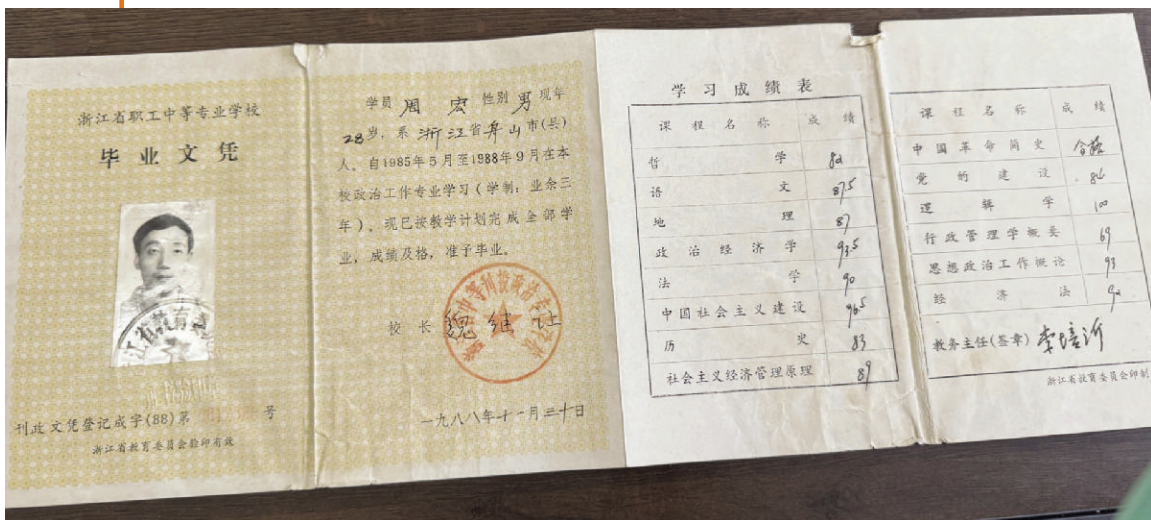 浙江省职工中等专业学校
毕业文凭
刊政文凭登记成字(88)第 号
浙江省教育委员会验印有效
学员 周宏 性别 男 现年
28岁，系 浙江省舟山市(县)
人。自1985年5月至1988年9月在本
校政治工作专业学习（学制：业余三
年）、现已按教学计划完成全部学
业，成绩及格，准予毕业。
校长
一九八八年十一月三十日
学习成绩表
课程名称 成绩
哲学 82
语文 87.5
地理 87
政治经济学 93.5
法学 90
中国社会主义建设 96.5
历史 83
社会主义经济管理原理 89
课程名称 成绩
中国革命简史 合格
党的建设 86
逻辑学 100
行政管理学概要 69
思想政治工作概论 93
经济法 92
教务主任(签章) 李培沂
浙江省教育委员会印制